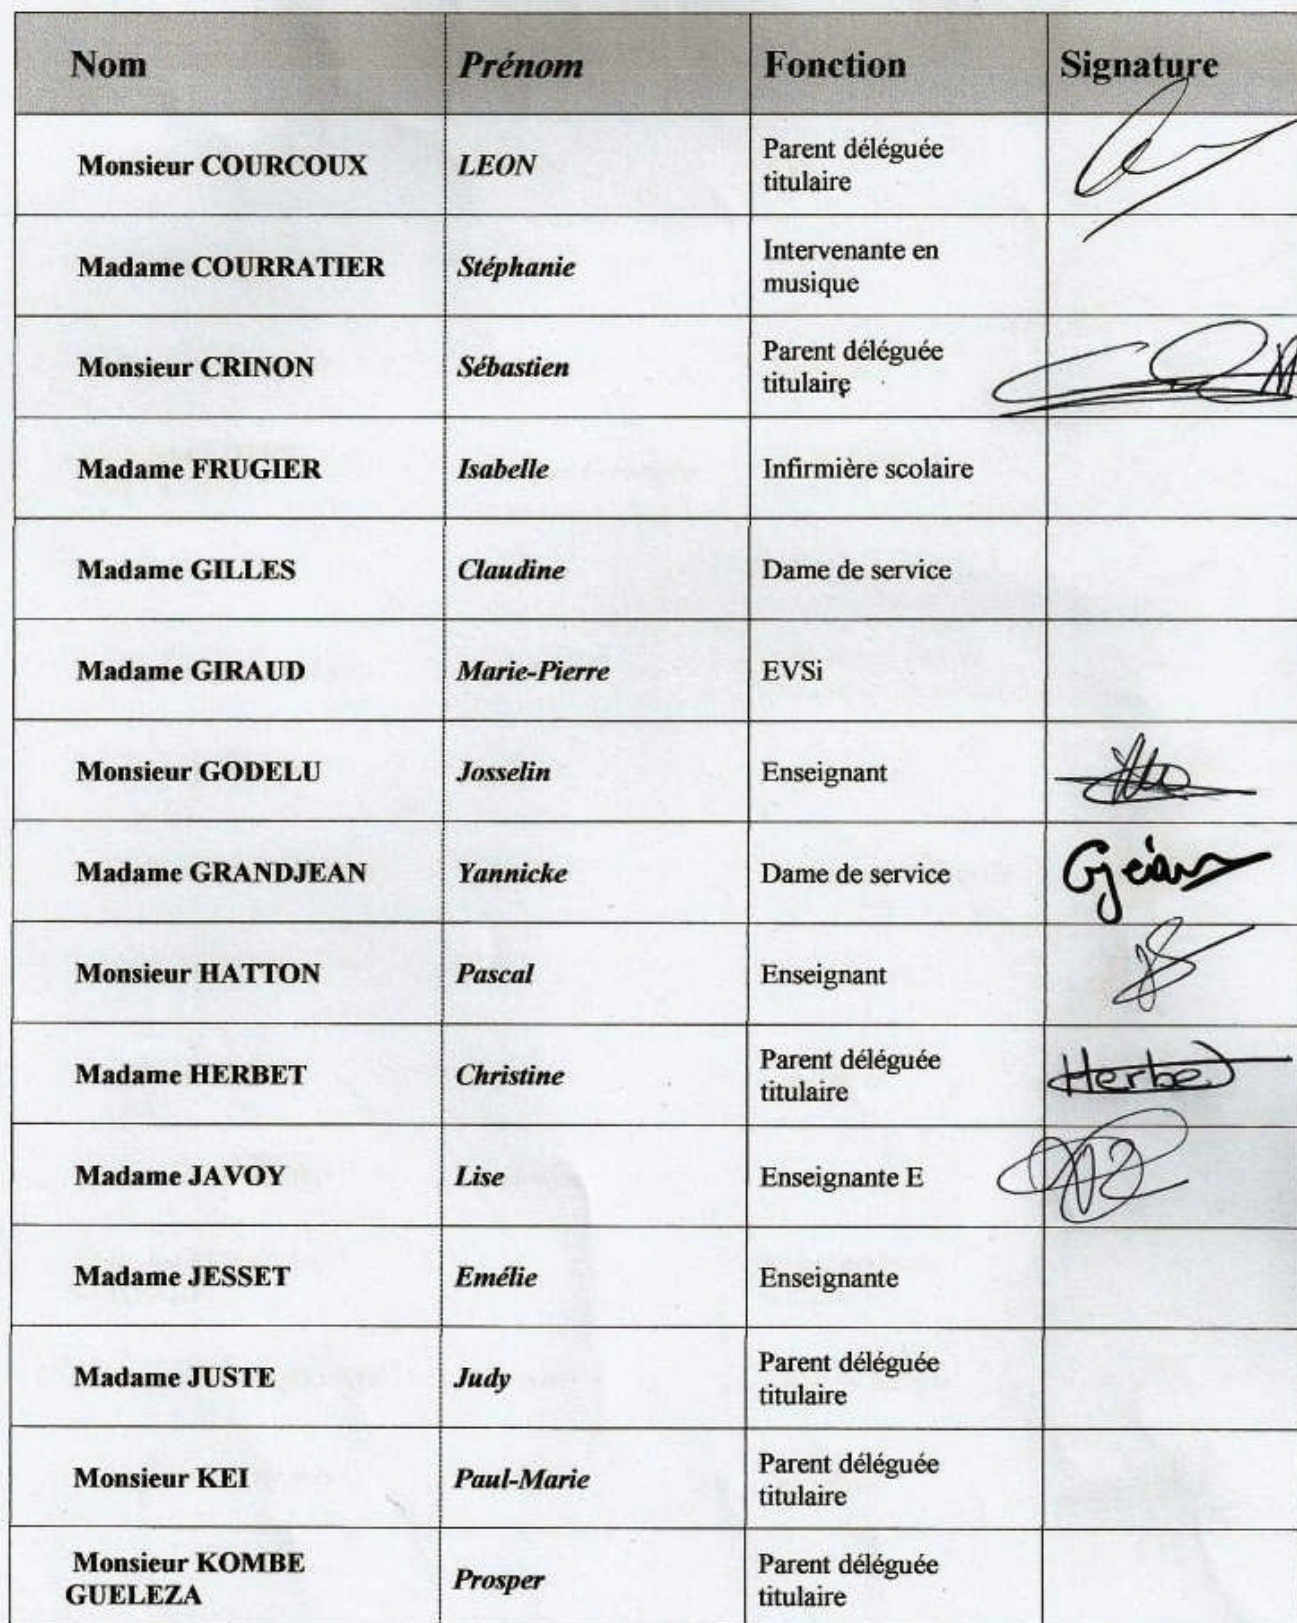 Nom Prénom Fonction Signature
Monsieur COURCOUX LEON Parent déléguée
titulaire
Madame COURRATIER Stéphanie Intervenante en
musique
Monsieur CRINON Sébastien Parent déléguée
titulaire
Madame FRUGIER Isabelle Infirmière scolaire
Madame GILLES Claudine Dame de service
Madame GIRAUD Marie-Pierre EVSi
Monsieur GODELU Josselin Enseignant
Madame GRANDJEAN Yannicke Dame de service Gjean
Monsieur HATTON Pascal Enseignant
Madame HERBET Christine Parent déléguée Herbet
titulaire
Madame JAVOY Lise Enseignante E
Madame JESSET Emélie Enseignante
Madame JUSTE Judy Parent déléguée
titulaire
Monsieur KEI Paul-Marie Parent déléguée
titulaire
Monsieur KOMBE
GUELEZA Prosper Parent déléguée
titulaire